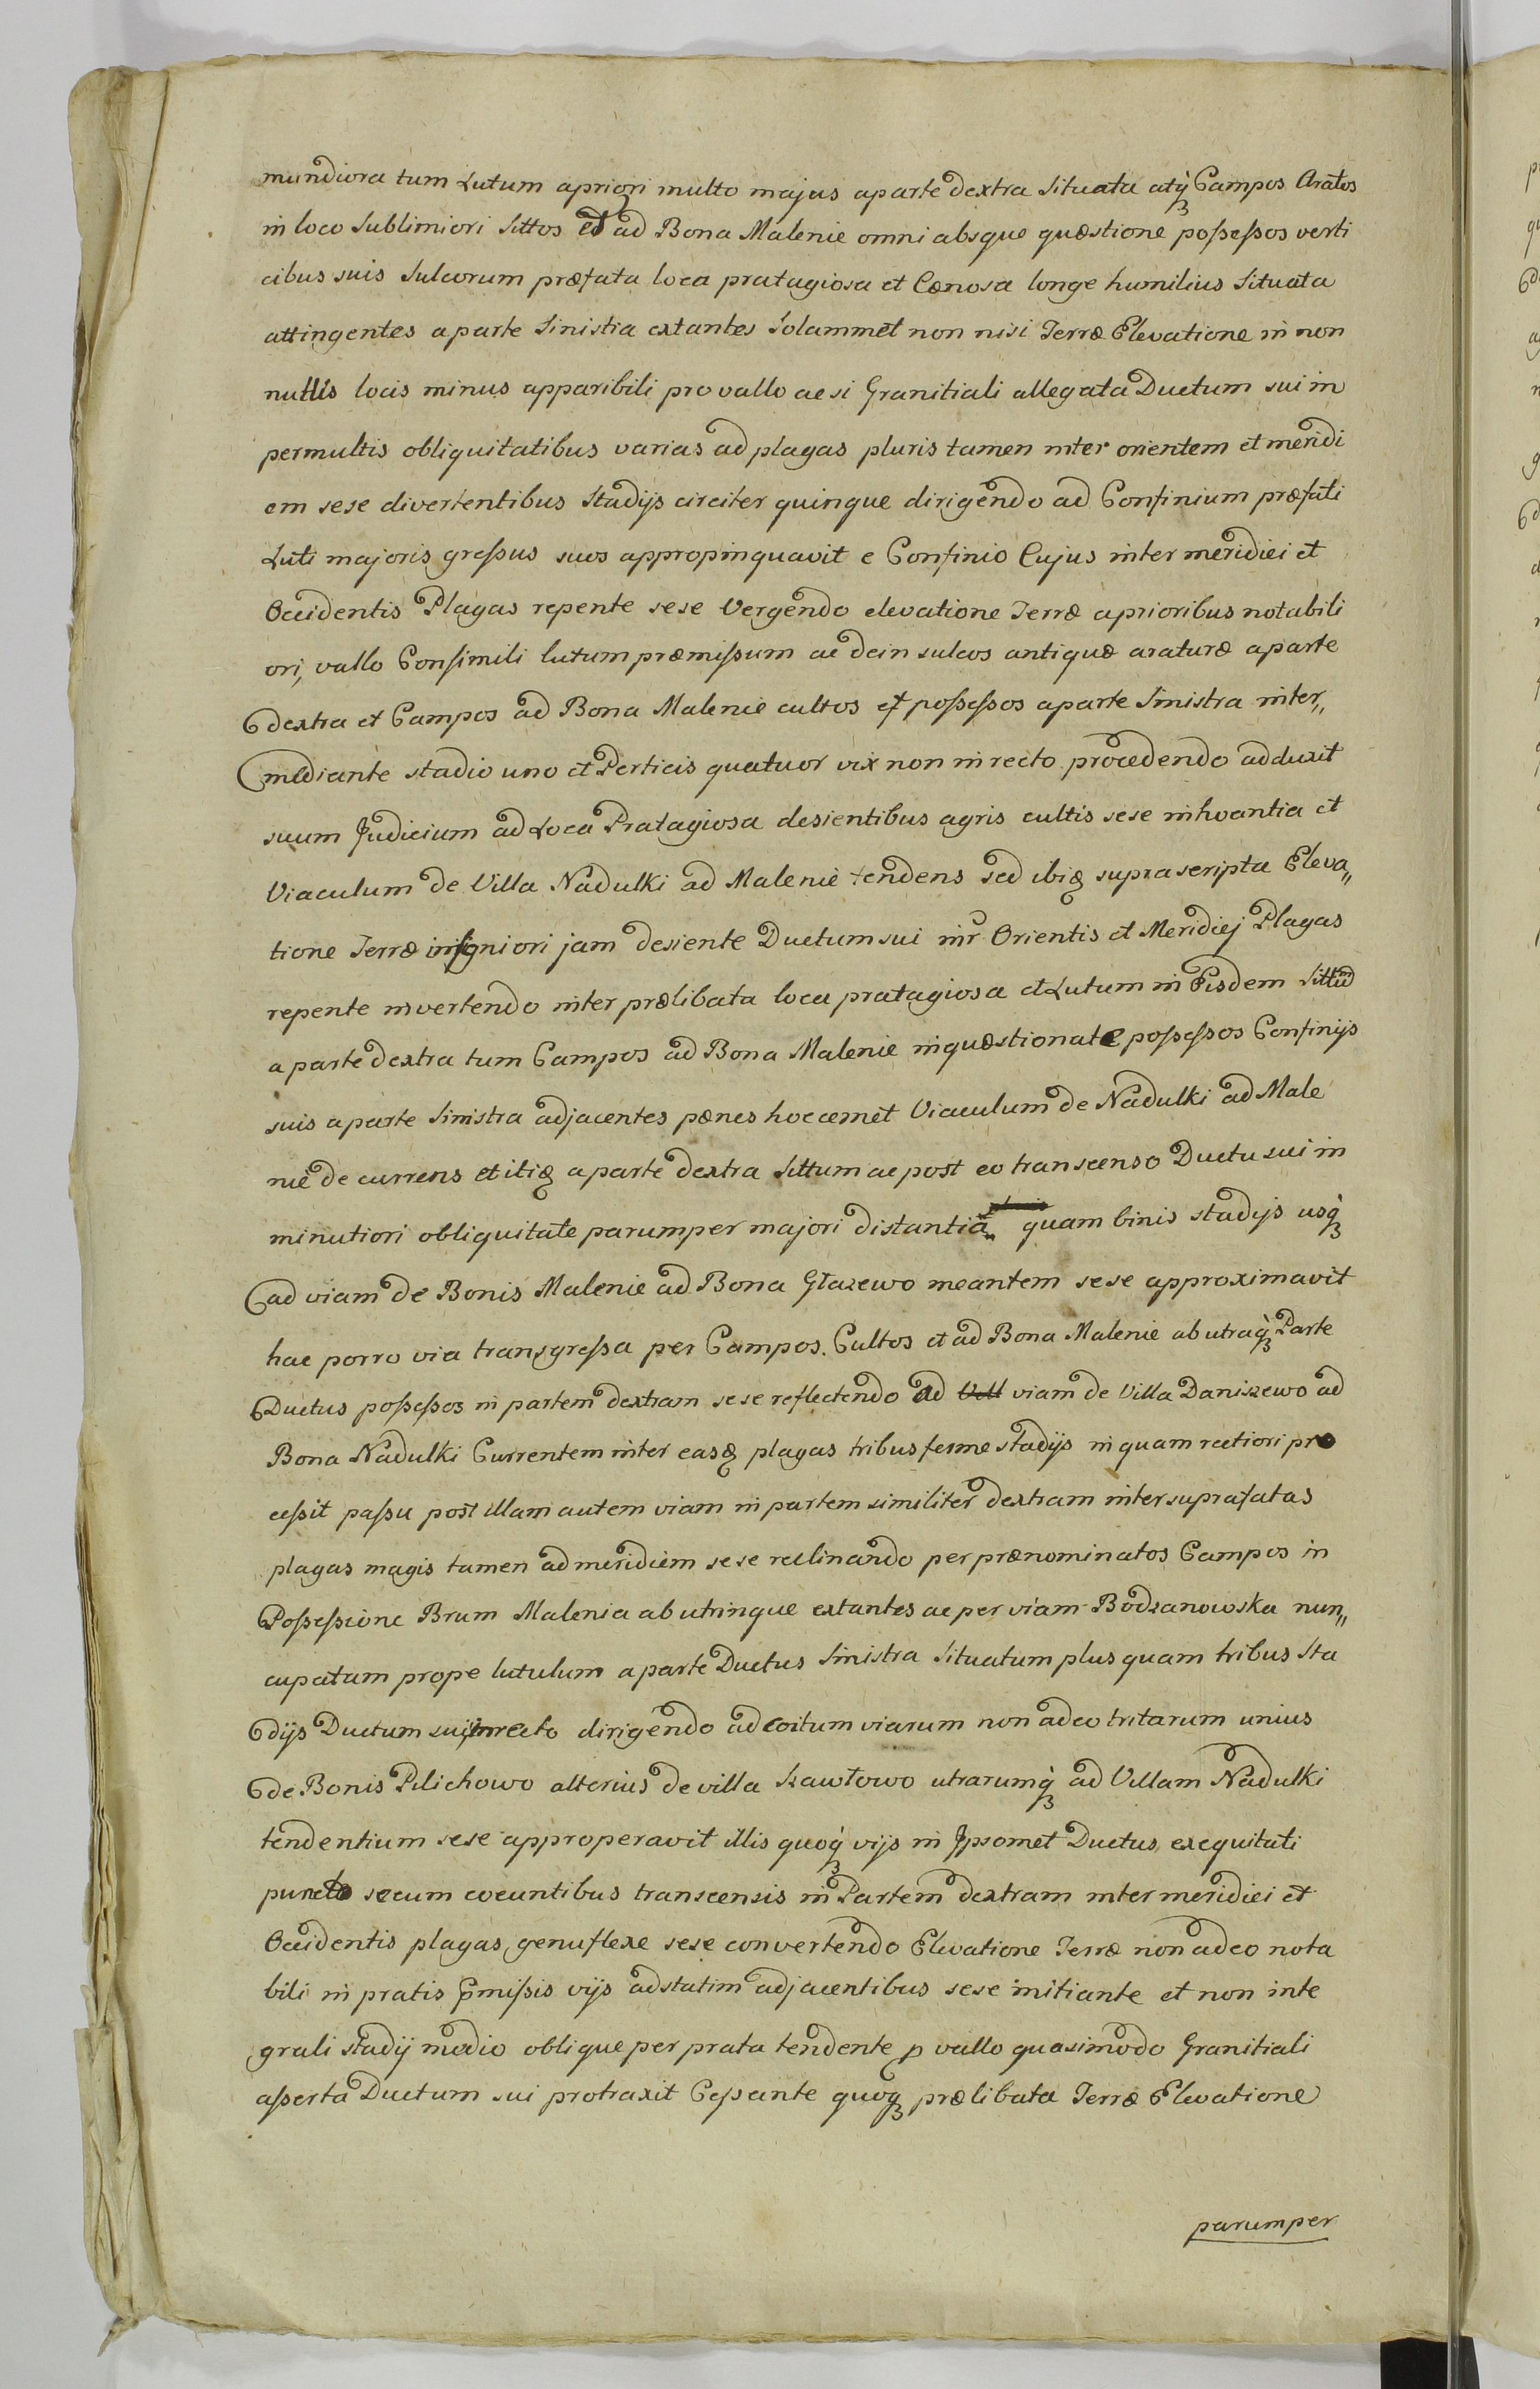 mundiora tum Lutum apriori multo majus aparte dextra Situata atq́ Campos Aratos
in loco Sublimiori Sittos et ad Bona Malenie omni absque quæstione poſseſsos verti
cibus suis Sulcorum præfata loca pratagiosa et Cænosa longe humilius Situata
attingentes aparte Sinistra extantes Solammet non nisi Terræ Elevatione in non
nullis locis minus apparibili pro vallo ac si Granitiali allegata Ductum sui in
permultis obliquitatibus varias ad plagas pluris tamen inter orientem et meridi
em sese divertentibus Stadijs circiter quinque dirigendo ad Confinium præfati
Luti majoris greſsus suos appropinquavit e Confinio Cujus inter meridiei et
Occidentis Plagas repente sese Vergendo elevatione Terræ aprioribus notabili
ori, vallo Consimili lutum præmiſsum ac dein sulcos antiquæ araturæ aparte
dextra et Campos ad Bona Malenie cultos et poſseſsos aparte Sinistra inter„
mediante stadio uno et Perticis quatuor vix non in recto procedendo adduxit
suum Judicium ad Loca Pratagiosa desientibus agris cultis sese inhoantia et
Viaculum de Villa Nadulki ad Malenie tendens sed ibiq supra scripta Eleva„
tione Terræ insigniori jam desiente Ductum sui inr Orientis et Meridiej Plagas
repente invertendo inter prælibata loca pratagiosa et Lutum in Eisdem Sittum
a parte dextra tum Campos ad Bona Malenie inquæstionate poſseſsos Confinijs
suis aparte Sinistra adjacentes pænes hoccemet Viaculum de Nadulki ad Male
nie de currens et itiq aparte dextra Sittum ac post eo transcenso Ductu sui in
minutiori obliquitate parumper majori distantia quam binis stadijs usq́
ad viam de Bonis Malenie ad Bona Głazewo meantem sese approximavit
hac porro via transgreſsa per Campos Cultos et ad Bona Malenie ab utraq́ Parte
Ductus poſseſsos in partem dextram sese reflectendo ad viam de Villa Daniszewo ad
Bona Nadulki Currentem inter easq plagas tribus ferme stadijs in quam rectiori pro
ceſsit paſsu post illam autem viam in partem similiter dextram inter suprafatas
plagas magis tamen ad meridiem sese reclinando per prænominatos Campos in
Poſseſsione Brum Malenia ab utrinque extantes ac per viam Bodzanowska nun„
cupatam prope lutulum aparte Ductus Sinistra Situatum plus quam tribus Sta
dijs Ductum sui in recto dirigendo ad coitum viarum non adeo tritarum unius
de Bonis Pilichowo alterius de villa Szawłowo utrarumq́ ad Villam Nadulki
tendentium sese approperavit illis quoq́ vijs in Jpsomet Ductus exequitati
puncto secum coeuntibus transcensis in Partem dextram inter meridiei et
Occidentis plagas genuflexe sese convertendo Elevatione Terræ non adeo nota
bili in pratis p̄miſsis vijs adstatim adjacentibus sese initiante et non inte
grali stadij medio oblique per prata tendente p vallo quasimodo Granitiali
aſserta Ductum sui protraxit Ceſsante quoq prælibata Terræ Elevatione
parumper